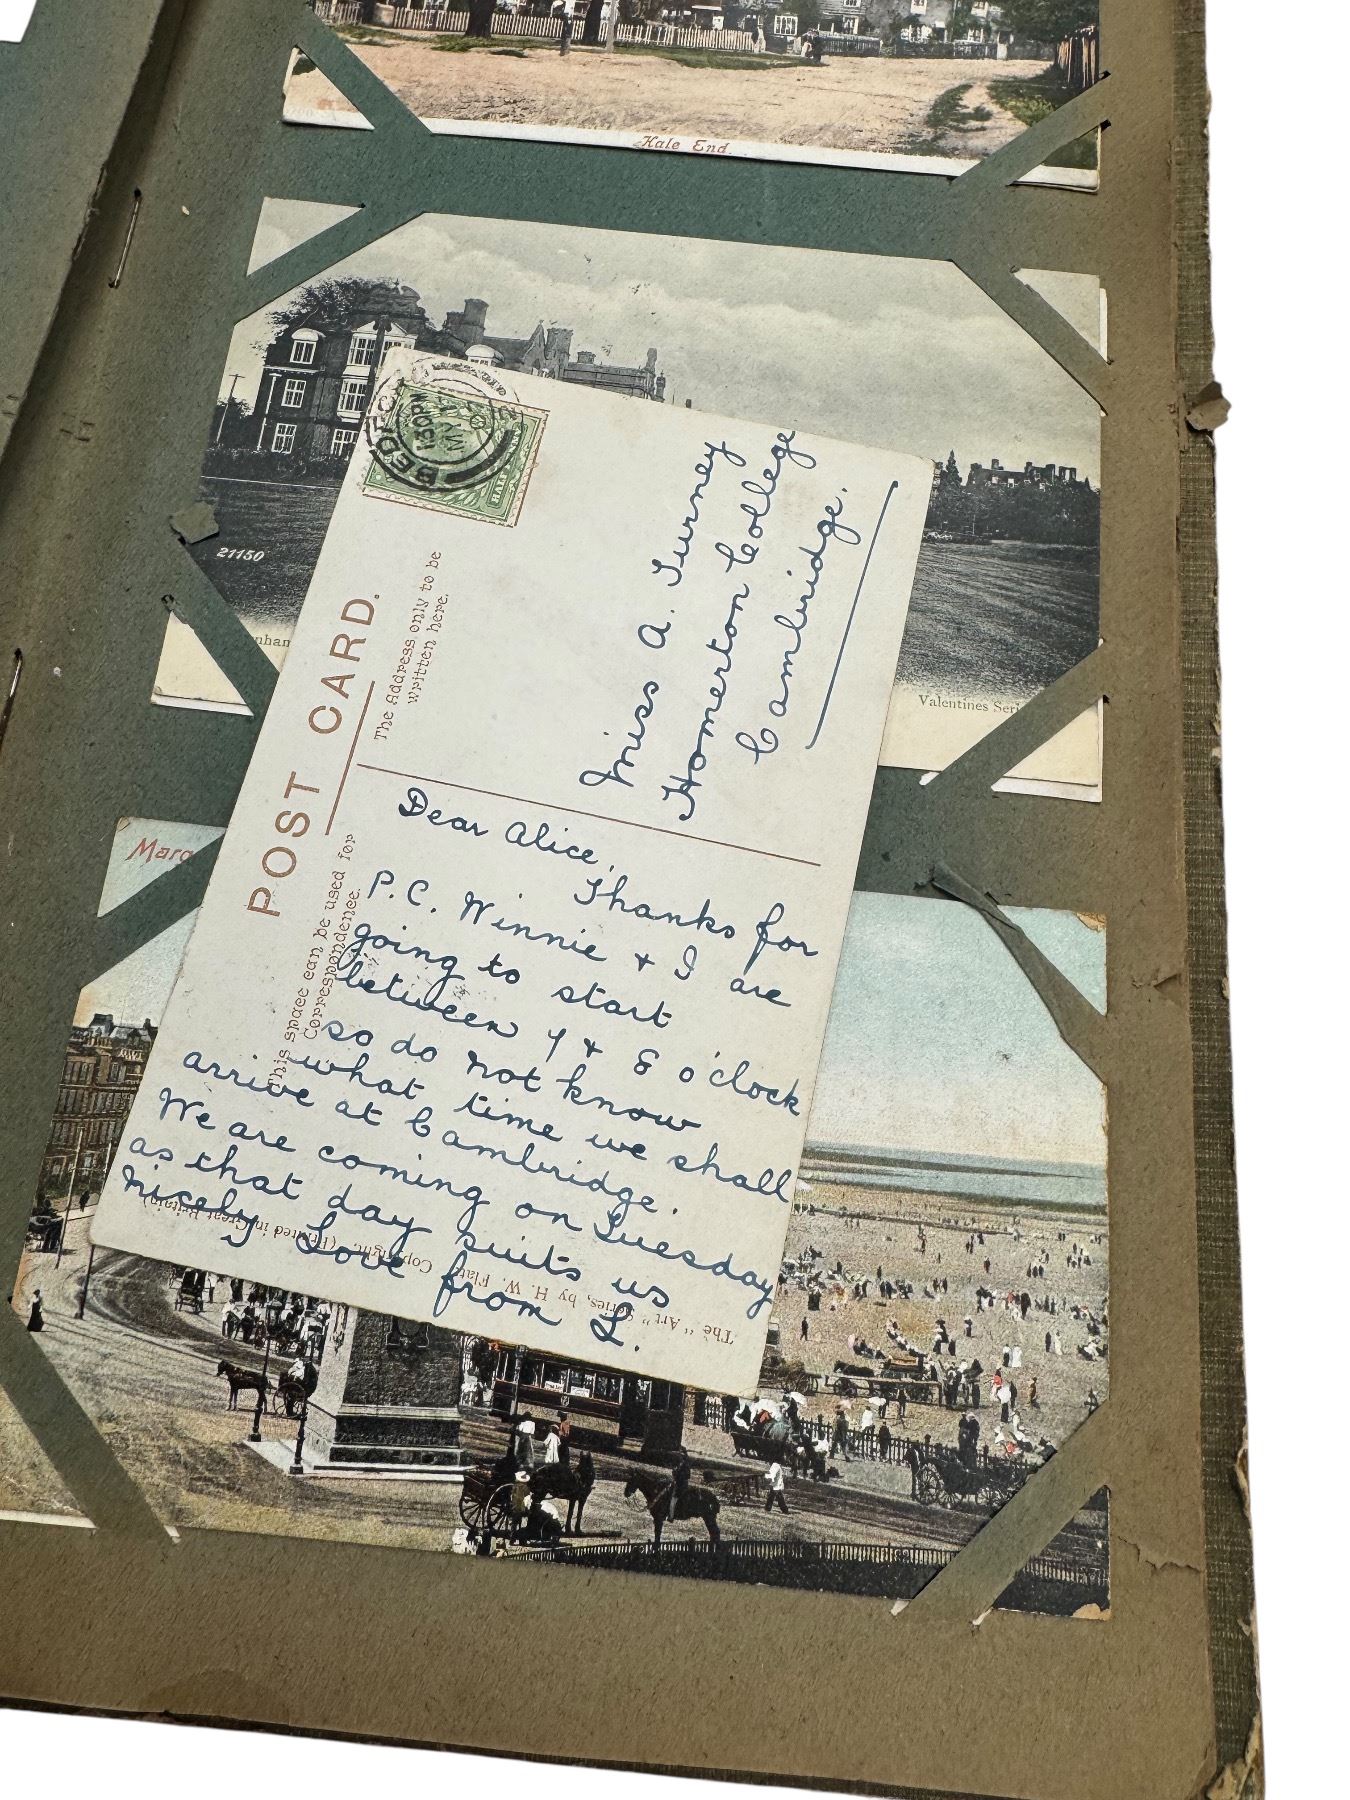 Hale End.
21150
nhan
Valentines Seri
Marg
BEDFO
1.30PM
MY
HALF
POST CARD.
The Address only to be
written here.
This space can be used for
Correspondence.
Miss A. Turney
Homerton College
Cambridge.
Dear Alice,
Thanks for
P.C. Winnie & I are
going to start
between 7 & 8 o'clock
so do not know
what time we shall
arrive at Cambridge.
We are coming on Tuesday
as that day suits us
nicely Love from L.
The "Art" Series, by H. W. Flatt, Copyright. (Printed in Great Britain)